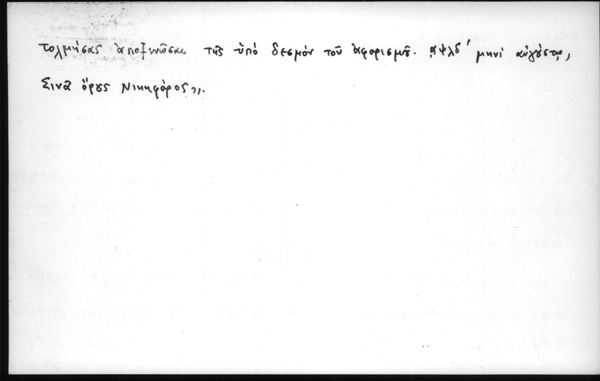 τολμήσας ἀποξενῶσαι τῆς ὑπό δεσμόν τοῦ ἀφορισμοῦ. ͵αψλδ´ μηνί αὐγούστῳ,
Σινᾶ ὄρους Νικηφόρος».